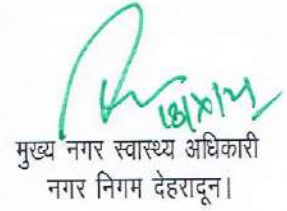 18/X/21
मुख्य नगर स्वास्थ्य अधिकारी
नगर निगम देहरादून।